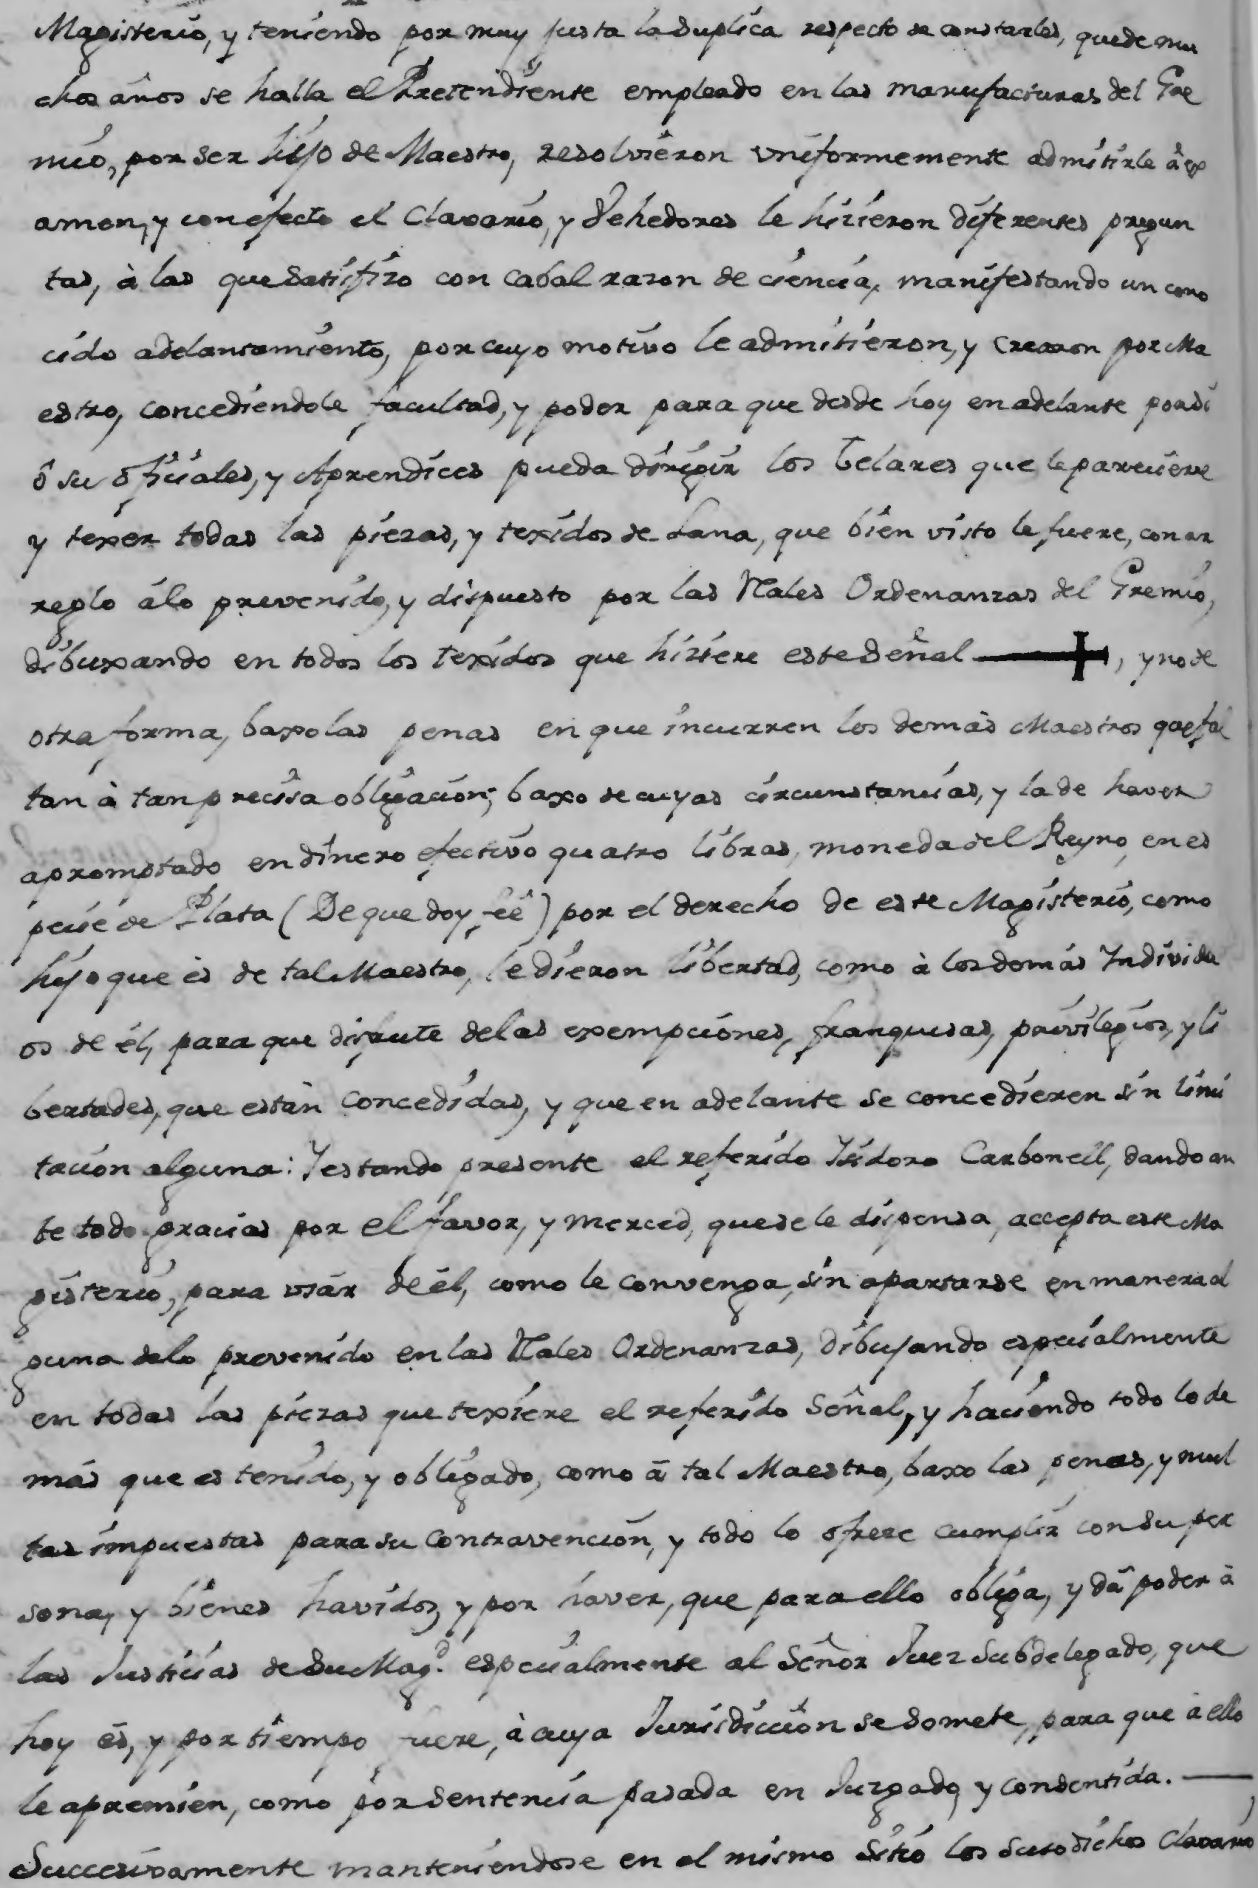 Magisterio, y teniendo por muy justa la suplica respecto de constarles, que de mu
chos años se halla el Pretendiente empleado en las manufacturas del Gre
mio, por ser hijo de Maestro, resolvieron vniformemente admitirle â ex
amen, y con efecto el Clavario, y Vehedores le hizieron diferentes pregun
tas, à las que satisfizo con cabal razon de ciencia, manifestando un cono
cido adelantamiento, por cuyo motivo le admitieron, y crearon por Ma
estro, concediendole facultad, y poder para que desde hoy en adelante por si
ô su oficiales, y Aprendices pueda dirigir los Telares que le pareciere
y texer todas las piezas, y texidos de Lana, que bien visto le fuere, con ar
reglo álo prevenido, y dispuesto por las Rales Ordenanzas del Gremio,
dibuxando en todos los texidos que hiziere este señal, y no de
otra forma, baxo las penas en que incurren los demàs Maestros que fal
tan à tan precisa obligacion; baxo de cuyas circunstancias, y la de haver
apromptado en dinero efectivo quatro libras, moneda del Reyno, en es
pecie de Plata (De que doy feê) por el derecho de este Magisterio, como
hijo que ès de tal Maestro, le dieron libertad, como à los demás Individu
os de él, para que disfrute de las exempciones, franquesas, privilegios, y li
bertades, que estàn concedidas, y que en adelante se concedieren sin limi
tacion alguna: Y estando presente el referido Isidoro Carbonell, dando an
te todo gracias por el favor, y merced, que se le dispensa, accepta este Ma
gisterio, para vsár de él, como le convenga, sin apartarse en manera al
guna delo prevenido en las Rales Ordenanzas, dibujando especialmente
en todas las piezas que texiere el referido Señal, y haciendo todo lo de
más que es tenido, y obligado, como â tal Maestro, baxo las penas, y mul
tas impuestas para su contravencion, y todo lo ofrece cumplir con su per
sona, y bienes havidos, y por haver, que para ello obliga, y dâ poder à
las Justicias de Su Magd. especialmente al Señor Juez Subdelegado, que
hoy és, y por tiempo fuere, à cuya Jurisdiccion se somete, para que à ello
le apremien, como por sentencia pasada en Juzgado, y consentida.
Succesivamente manteniendose en el mismo sitio los susodichos Clavario,